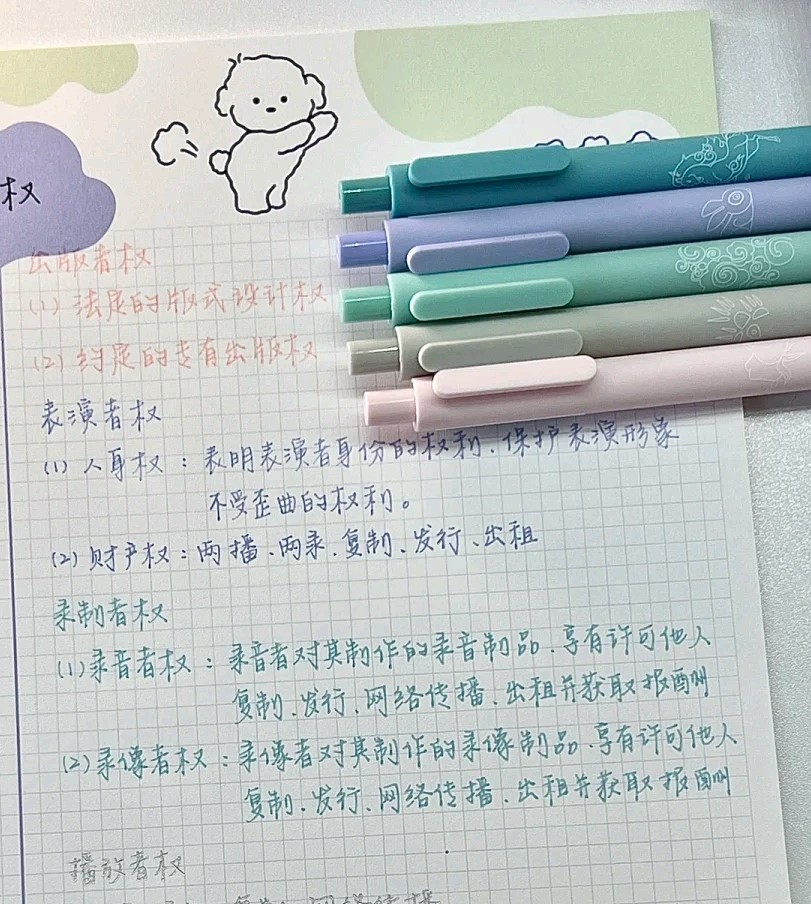 权
出版者权
(1) 法定的版式设计权
(2) 约定的专有出版权
表演者权
(1) 人身权：表明表演者身份的权利、保护表演形象
不受歪曲的权利。
(2) 财产权：两播、两录、复制、发行、出租
录制者权
(1) 录音者权：录音者对其制作的录音制品、享有许可他人
复制、发行、网络传播、出租并获取报酬
(2) 录像者权：录像者对其制作的录像制品、享有许可他人
复制、发行、网络传播、出租并获取报酬
播放者权